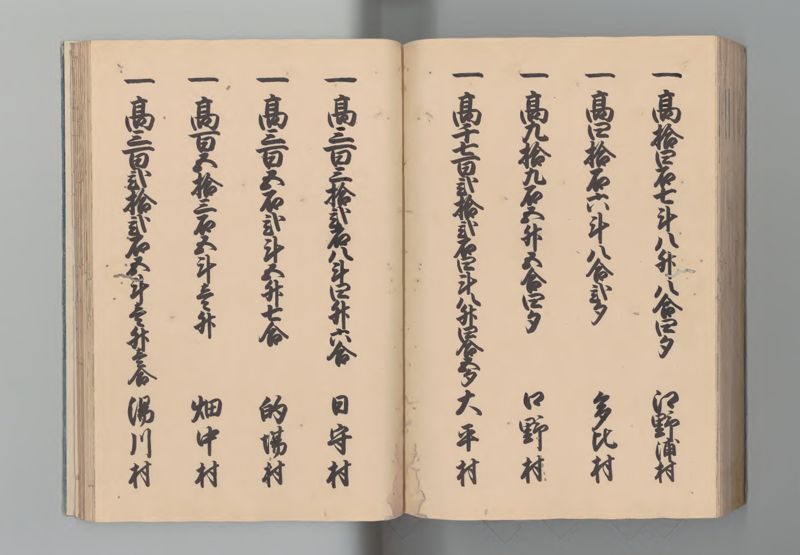 一 高拾四石七斗八升八合四夕 江野浦村
一 高四拾石六斗八合弐夕 多比村
一 高九拾九石五升五合四夕 口野村
一 高千七百弐拾弐石四斗八升四合五夕 大平村
一 高三百三拾弐石八斗四升六合 日守村
一 高三百五石弐斗五升七合 的場村
一 高百五拾三石五斗壱升 畑中村
一 高三百弐拾弐石五斗壱升壱合 湯川村